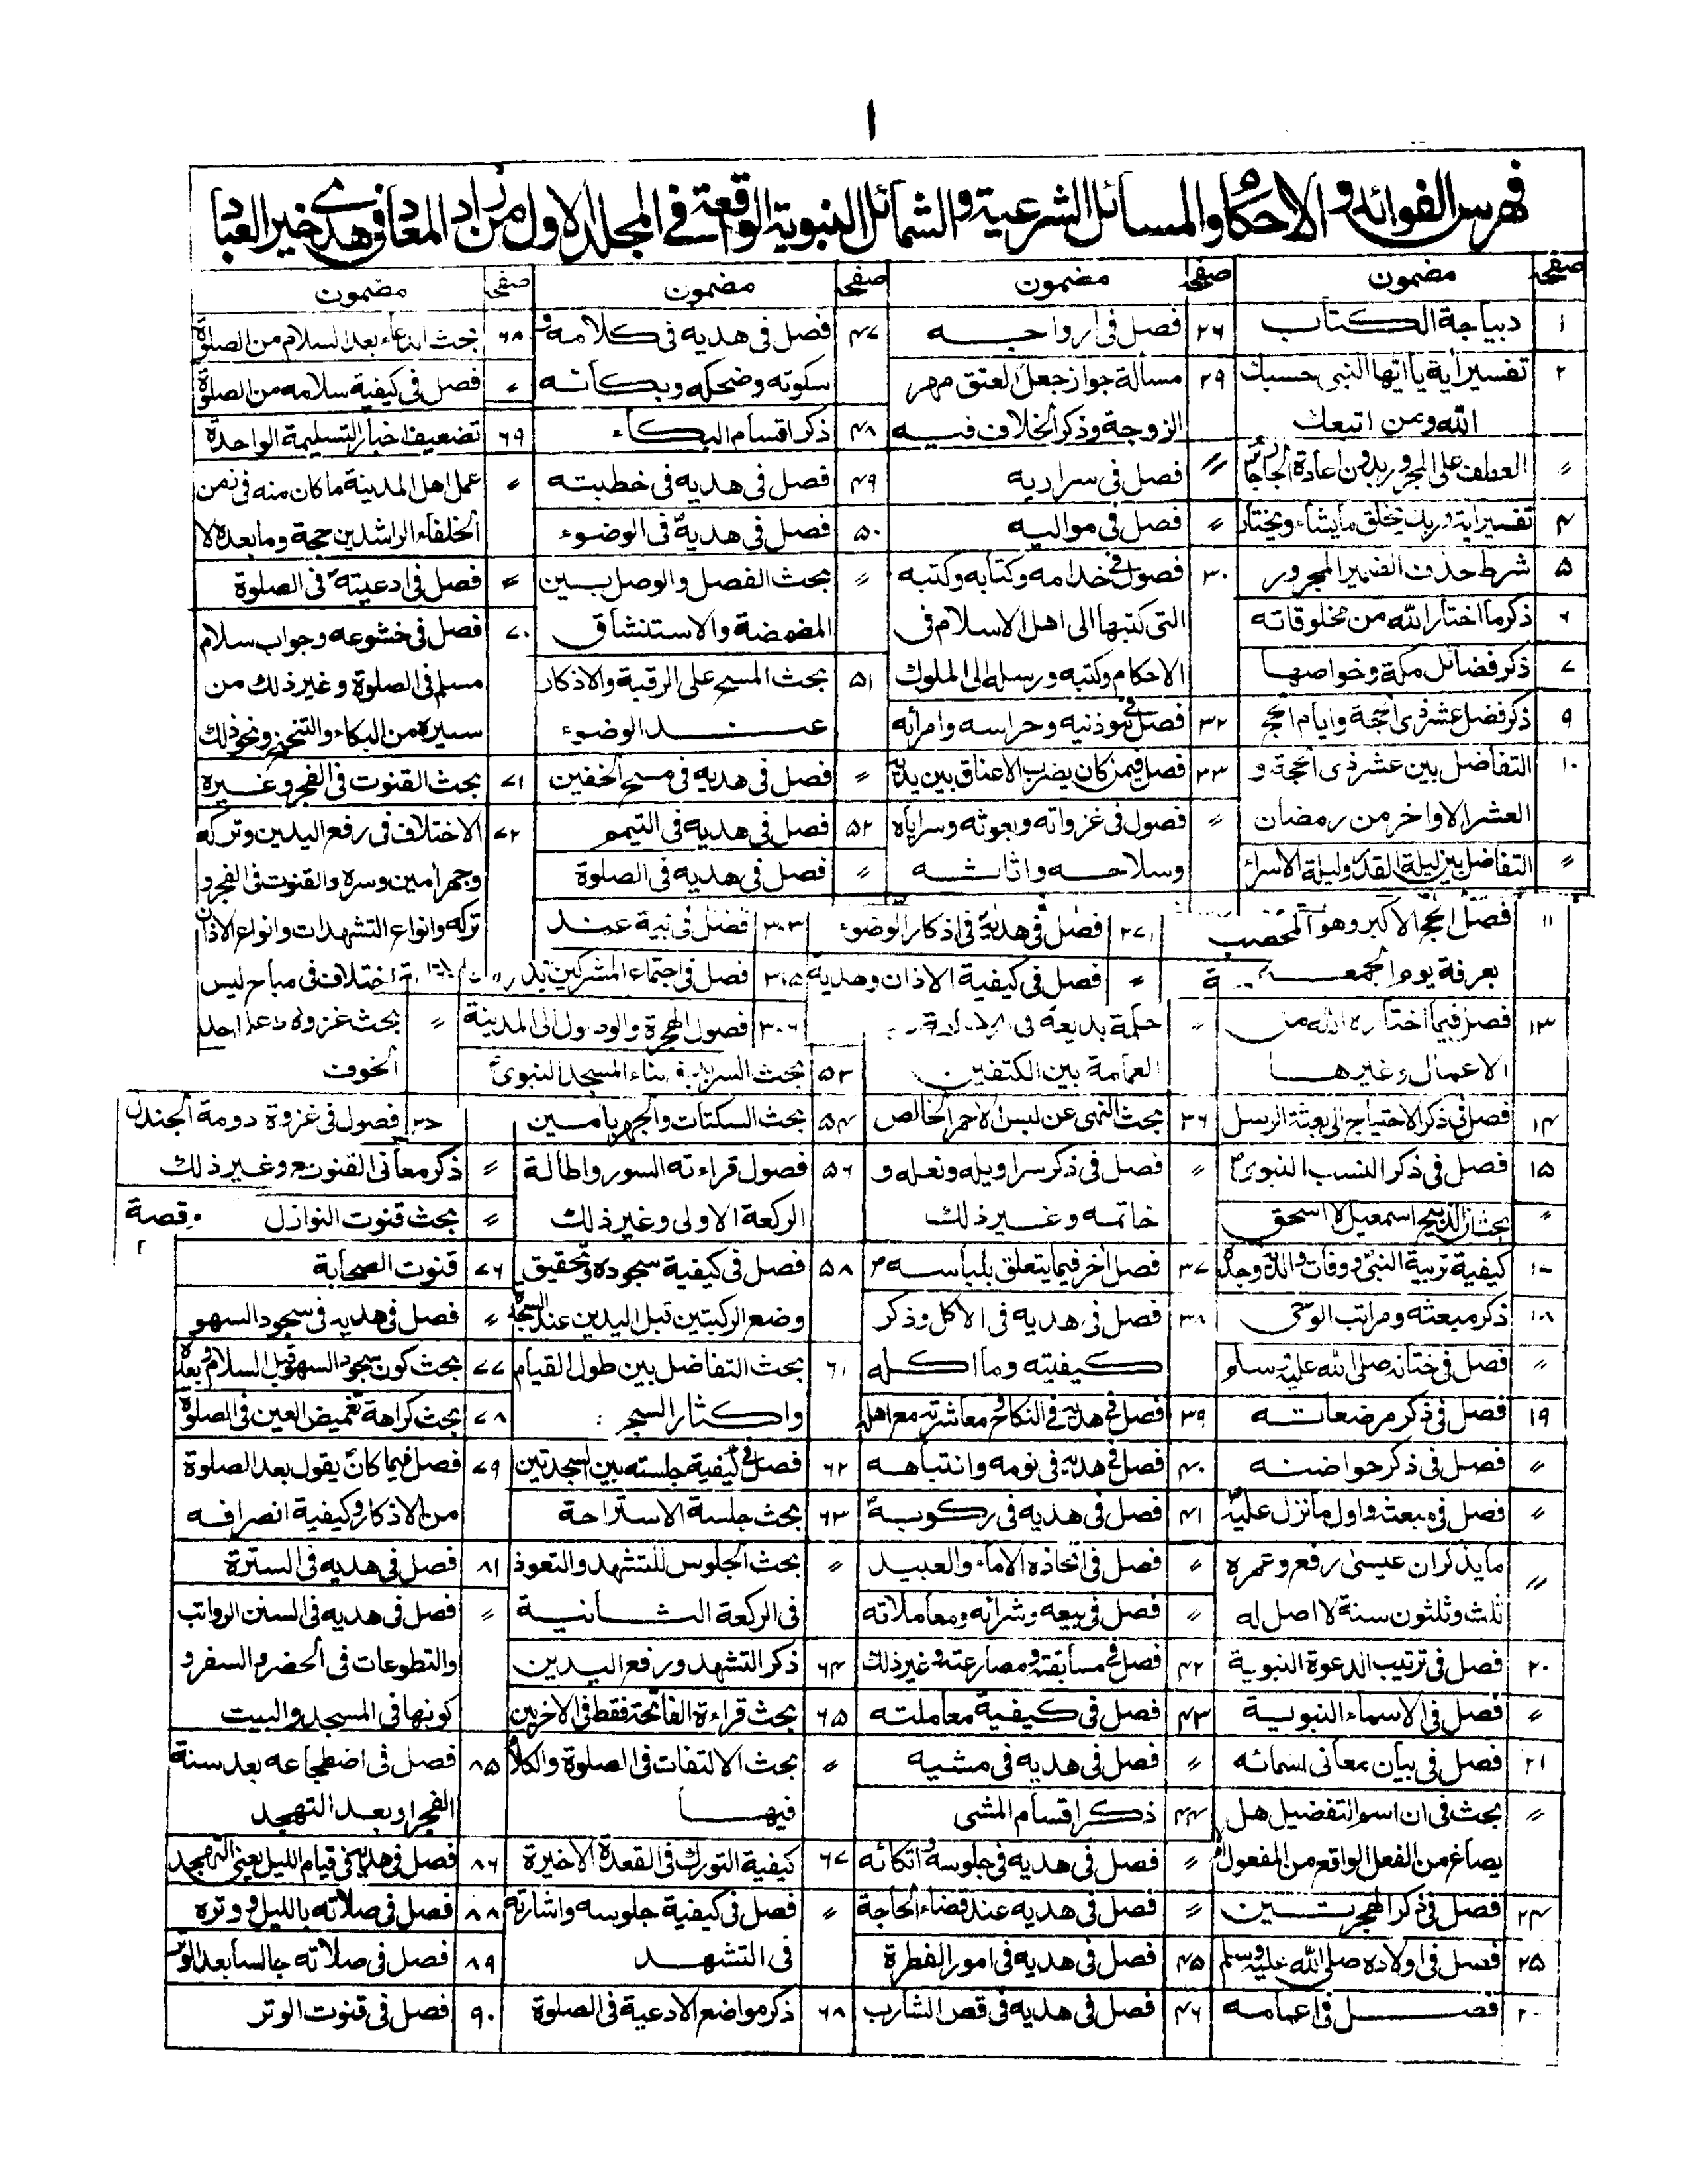 ١
فهرس الفوائد و الاحكام والمسائل الشرعية والشمائل النبوية الواقعة في المجلد الاول من زاد المعاد في هدى خير العباد
صفحه مضمون
١ ديباجة الكتاب
٢ تفسير أية يا ايها النبى حسبك
الله ومن اتبعك
〃 العطف على المجرور بدون اعادة الجار
٤ تفسير اية وربك يخلق ما يشاء ويختار
٥ شرط حذف الضمير المجرور
٦ ذكر ما اختار الله من مخلوقاته
٧ ذكر فضائل مكة وخواصها
٩ ذكر فضل عشر ذى الحجة وايام الحج
١٠ التفاضل بين عشر ذى الحجة و
العشر الاواخر من رمضان
〃 التفاضل بين ليلة القدر وليلة الاسراء
١١ فصل الحج الاكبر وهو
بعرفة يوم الجمعة
١٣ فصل فيما اختاره الله من
الاعمال وغيرها
١٤ فصل فى ذكر الاحتياج الى بعثة الرسل
١٥ فصل فى ذكر النسب النبوى
〃 بحث ان الذبيح اسمعيل لا اسحق
كيفية تربية النبى ووفات والده وجده
١٨ ذكر مبعثه ومراتب الوحى
〃 فصل فى ختانه صلى الله عليه وسلم
١٩ فصل فى ذكر مرضعاته
〃 فصل فى ذكر حواضنه
〃 فصل فى مبعثه واول ما نزل عليه
〃 ما يذكر ان عيسى رفع وعمره
ثلث وثلثون سنة لا اصل له
٢٠ فصل فى ترتيب الدعوة النبوية
〃 فصل فى الاسماء النبوية
٢١ فصل فى بيان معانى اسمائه
〃 بحث فى ان اسم التفضيل هل
يصاغ من الفعل الواقع من المفعول
٢٤ فصل فى ذكر الهجرتين
٢٥ فصل فى اولاده صلى الله عليه وسلم
فصل فى اعمامه
صفحه مضمون
٢٦ فصل فى ازواجه
٢٩ مسألة جواز جعل العتق مهر
الزوجة وذكر الخلاف فيه
〃 فصل فى سراريه
〃 فصل فى مواليه
٣٠ فصول فى خدامه وكتابه وكتبه
التى كتبها الى اهل الاسلام فى
الاحكام وكتبه ورسله الى الملوك
٣٢ فصل فى مؤذنيه وحراسه وامرأيه
٣٣ فصل فيمن كان يضرب الاعناق بين يديه
〃 فصول فى غزواته وبعوثه وسراياه
وسلاحه واثاثه
٢٧١ فصل فى هديه فى اذكار الوضوء
〃 فصل فى كيفية الاذان وهديه
〃 حكمة بديعة فى
العمامة بين الكتفين
٣٦ بحث النهى عن لبس الاحمر الخالص
〃 فصل فى ذكر سراويله ونعله و
خاتمه وغير ذلك
٣٧ فصل أخر فيما يتعلق بلباسه
٣٨ فصل فى هديه فى الاكل وذكر
كيفيته وما اكله
٣٩ فصل فى هديه فى النكاح ومعاشرته مع اهله
٤٠ فصل فى هديه فى نومه وانتباهه
٤١ فصل فى هديه فى ركوبه
〃 فصل فى اتخاذه الاماء والعبيد
〃 فصل فى بيعه وشرائه ومعاملاته
٤٢ فصل فى مسابقته ومصارعته وغير ذلك
٤٣ فصل فى كيفية معاملته
〃 فصل فى هديه فى مشيه
٤٤ ذكر اقسام المشى
〃 فصل فى هديه فى جلوسه واتكائه
〃 فصل فى هديه عند قضاء الحاجة
٤٥ فصل فى هديه فى امور الفطرة
٤٦ فصل فى هديه فى قص الشارب
صفحه مضمون
٤٧ فصل فى هديه فى كلامه و
سكوته وضحكه وبكائه
٤٨ ذكر اقسام البكاء
٤٩ فصل فى هديه فى خطبته
٥٠ فصل فى هديه فى الوضوء
〃 بحث الفصل والوصل بين
المضمضة والاستنشاق
٥١ بحث المسح على الرقبة والاذكار
عند الوضوء
〃 فصل فى هديه فى مسح الخفين
٥٢ فصل فى هديه فى التيمم
〃 فصل فى هديه فى الصلوة
٣٠٣ فصل فى نبية عمد
٣٠٥ فصل فى اجتماع المشركين
٣٠٦ فصول الهجرة والوصول الى المدينة
٥٣ بحث السربناء المسجد النبوى
٥٤ بحث السكتات والجهر بامين
٥٦ فصول قراءته السور واطالة
الركعة الاولى وغير ذلك
٥٨ فصل فى كيفية سجوده وتحقيق
وضع الركبتين قبل اليدين عند السجدة
٦١ بحث التفاضل بين طول القيام
واكثار السجو
٦٢ فصل فى كيفية جلسته بين السجدتين
٦٣ بحث جلسة الاستراحة
〃 بحث الجلوس للتشهد والتعوذ
فى الركعة الثانية
٦٤ ذكر التشهد ورفع اليدين
٦٥ بحث قراءة الفاتحة فقط فى الاخريين
〃 بحث الالتفات فى الصلوة والكلام
فيها
٦٧ كيفية التورك فى القعدة الاخيرة
〃 فصل فى كيفية جلوسه واشارته
فى التشهد
٦٨ ذكر مواضع الادعية فى الصلوة
صفحه مضمون
٦٨ بحث الدعاء بعد السلام من الصلوة
〃 فصل فى كيفية سلامه من الصلوة
٦٩ تضعيف اخبار التسليمة الواحدة
〃 عمل اهل المدينة ما كان منه فى زمن
الخلفاء الراشدين حجة وما بعده لا
〃 فصل فى ادعيته فى الصلوة
٧٠ فصل فى خشوعه وجواب سلام
مسلم فى الصلوة وغير ذلك من
سيره من البكاء والتنحنح ونحو ذلك
٧١ بحث القنوت فى الفجر وغيره
٧٢ الاختلاف فى رفع اليدين وتركه
وجهر امين وسره والقنوت فى الفجر و
تركه وانواع التشهدات وانواع الاذان
اختلاف فى مباح ليس
〃 بحث غزوة
الخوف
فصول فى غزوة دومة الجندل
〃 ذكر معانى القنوت وغير ذلك
〃 بحث قنوت النوازل قصة
٧٦ قنوت الصحابة
〃 فصل فى هديه فى سجود السهو
٧٧ بحث كون سجود السهو قبل السلام وبعده
٧٨ بحث كراهة تغميض العين فى الصلوة
٧٩ فصل فيما كان يقول بعد الصلوة
من الاذكار وكيفية انصرافه
٨١ فصل فى هديه فى السترة
〃 فصل فى هديه فى السنن الرواتب
والتطوعات فى الحضر والسفر و
كونها فى المسجد والبيت
٨٥ فصل فى اضطجاعه بعد سنة
الفجر او بعد التهجد
٨٦ فصل فى هديه فى قيام الليل يعنى التهجد
٨٨ فصل فى صلاته بالليل ووتره
٨٩ فصل فى صلاته جالسا بعد الوتر
٩٠ فصل فى قنوت الوتر